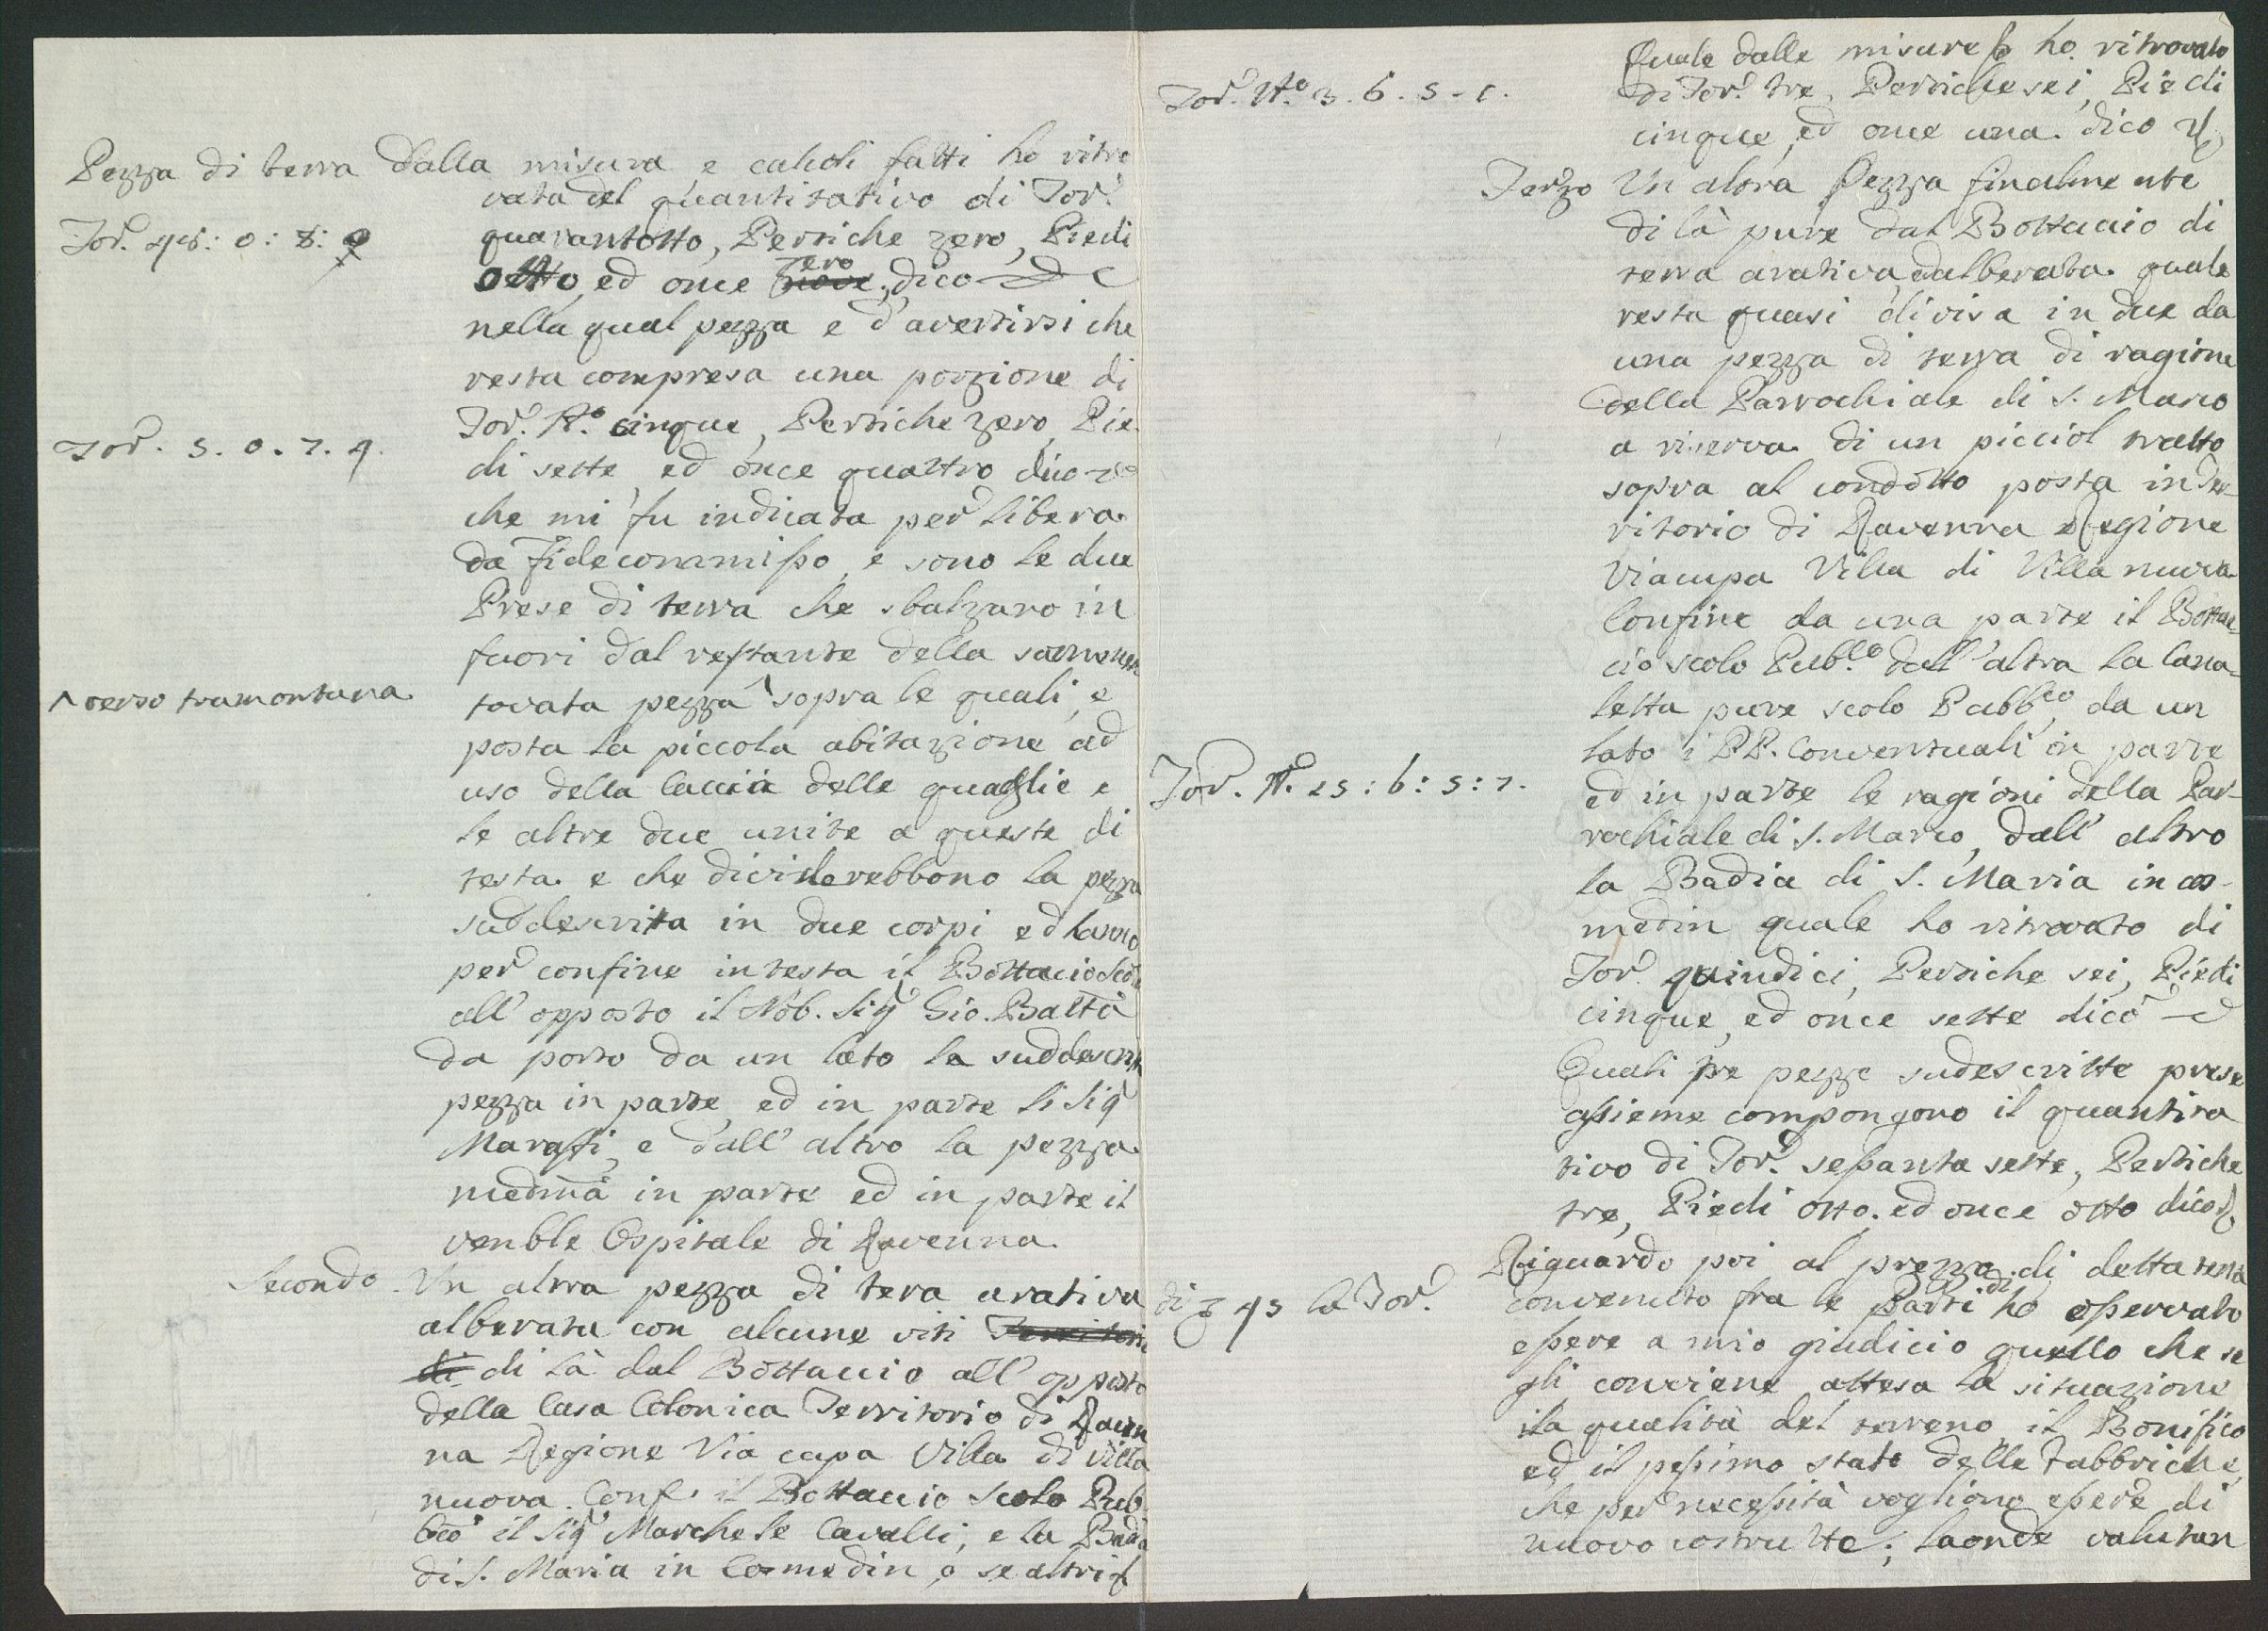 Pezza di terra dalla misura e calcoli fatti ho ritro
vata del quantitativo di Tor.
Tor. 48: 0: 8: 0
quarantotto, Pertiche zero, Piedi
otto, ed once zero, dico
nella qual pezza e d'avertirsi che
resta compresa una porzione di
Tor. N.o cinque, Pertiche zero, Pie
Tor. 5. 0. 7. 4.
di sette, ed once quattro dico
che mi fu indicata per libera
da Fidecommisso, e sono le due
Prese di terra che sbalzano in
fuori dal restante della soramen
^ verso tramontana
tovata pezza ^ sopra le quali, e
posta la piccola abitazione ad
uso della Caccia delle quaglie e
le altre due unite a queste di
testa e che dividerebbono la pezza
suddescritta in due corpi ed hanno
per confine in testa il Bottacio Scolo
all' opposto il Nob. Sig.r Gio. Batta
da porto da un lato la suddescritta
pezza in parte, ed in parte li Sig.
Marassi, e dall' altro la pezza
medma in parte ed in parte il
venble Ospitale di Ravenna.
Secondo. Un altra pezza di tera arativa
alberata con alcune viti Territorio
di di là dal Bottaccio all' opposto
della Casa Colonica Territorio di Raven
na Regione Via cupa Villa di Villa
nuova. Conf. il Bottaccio Scolo Pub
bco il Sig.r Marchese Cavalli, e la Badia
di S. Maria in Cosmedin, o se altri
Quale dalle misure ho ritrovato
Tor. N.o 3. 6. 5. 1.
di Tor. tre, Pertiche sei, Piedi
cinque, ed once una. dico
Terzo Un altra Pezza finalmente
di là pure dal Bottaccio di
terra arativa, ed alberata quale
resta quasi divisa in due da
una pezza di terra di ragione
della Parrochiale di S. Marco
a riserva di un picciol tratto
sopra al condotto posta in Ter-
ritorio di Ravenna Regione
Viacupa Villa di Villa nuova
Confine da una parte il Bottac-
cio scolo Pub.co dall' altra la Cana-
letta pure scolo Pubb.co, da un
lato i PP. Conventuali in parte
Tor. N. 15: 6: 5: 7.
ed in parte le ragioni della Par-
rochiale di S. Marco, dall' altro
la Badia di S. Maria in cos-
medin quale ho ritrovato di
Tor. quindici, Pertiche sei, Piedi
cinque, ed once sette dico
Quali tre pezze sudescritte prese
assieme compongono il quantita
tivo di Tor. sessanta sette, Pertiche
tre, Piedi otto. ed once otto dico
Riguardo poi al prezzo di detta terra
di 45 la Tor.
convenuto fra le Parti di ho osservato
essere a mio giudicio quello che se
gli conviene attesa la situazione
la qualità del terreno, il Bonifico
ed il pessimo stato delle Fabbriche,
che per necessità vogliono essere di
nuovo costrutte; laonde valutan